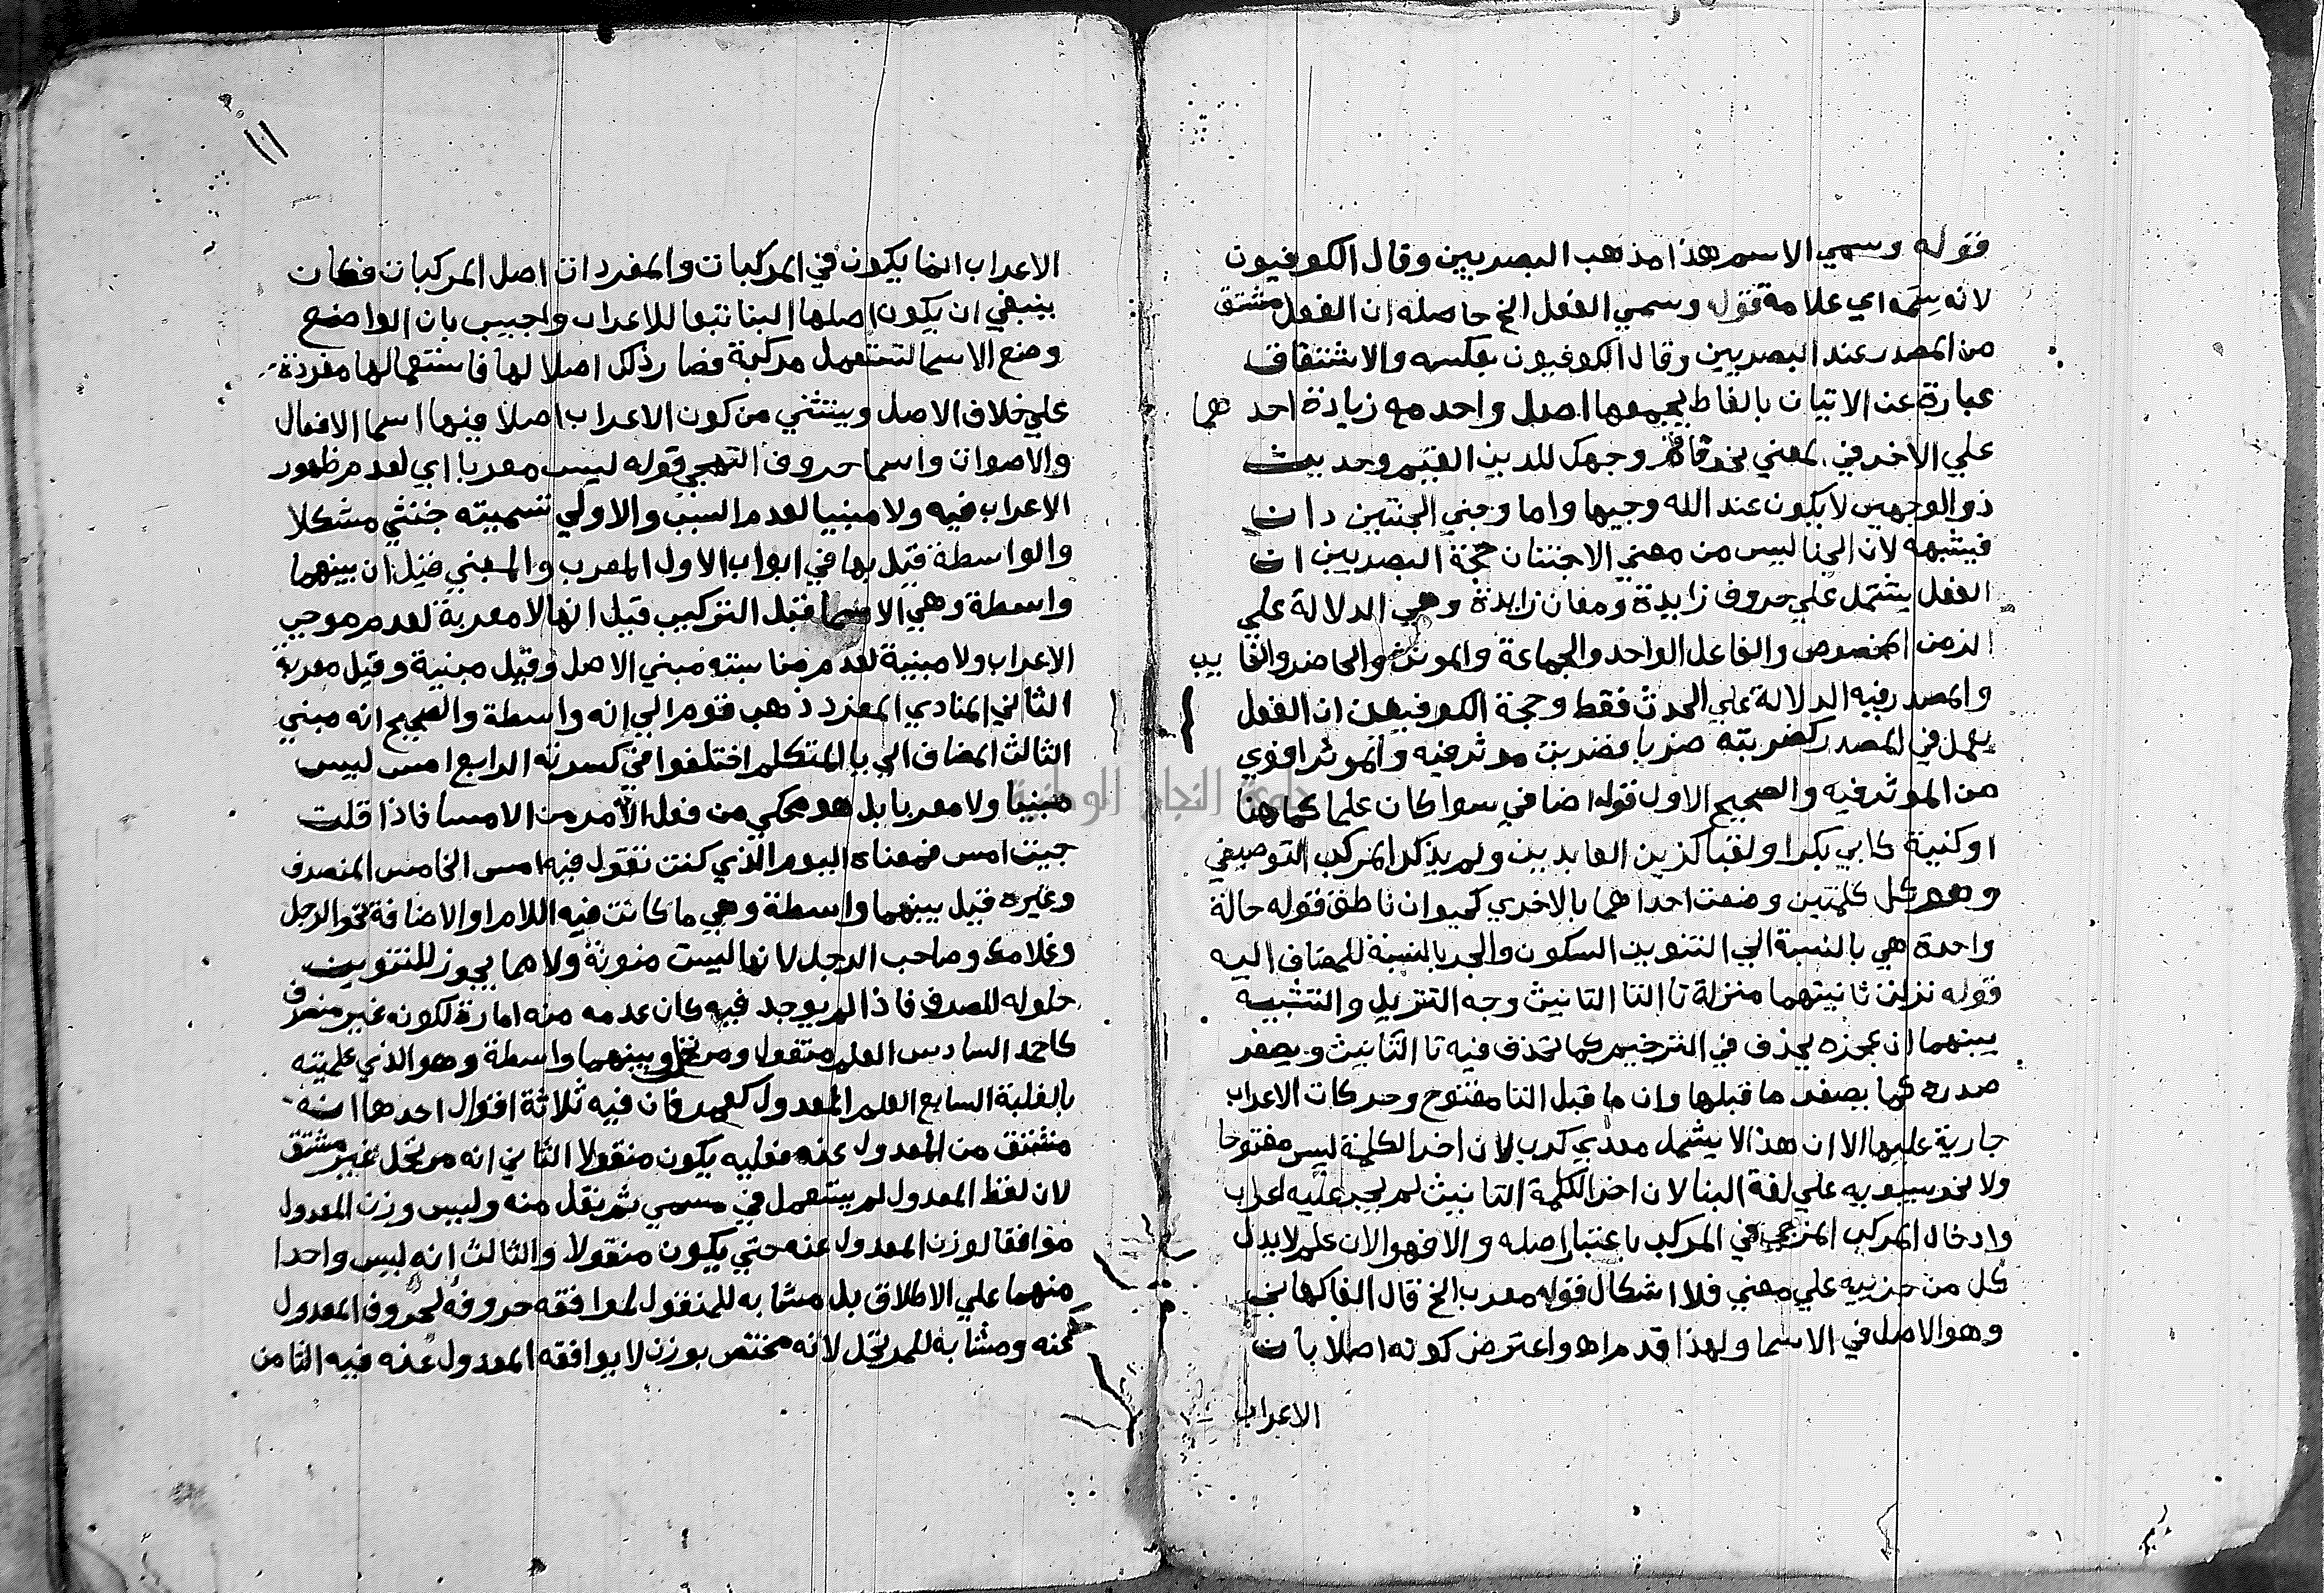 فقوله وسمي الاسم هذا مذهب البصريين وقال الكوفيون
لانه سمة اي علامة قوله وسمي الفعل الخ حاصله ان الفعل مشتق
من المصدر عند البصريين وقال الكوفيون بعكسه والاشتقاق
عبارة عن الاتيان بالفاظ يجمعها اصل واحد مع زيادة احدهما
علي الاخر في المعني نحو فاقم وجهك للدين القيم وحديث
ذو الوجهين لا يكون عند الله وجيها واما وجني الجنتين دان
فيشبهه لان الجنا ليس من معني الاجتنان حجة البصريين ان
الفعل يشتمل علي حروف زايدة ومعان زايدة وهي الدلالة علي
الزمن المخصوص والفاعل الواحد والجماعة والمونث والحاضر والغايب
والمصدر فيه الدلالة علي الحدث فقط وحجة الكوفيون ان الفعل
يعمل في المصدر كضربته ضربا فضربت موثر فيه والموثر اقوي
من الموثر فيه والصحيح الاول قوله اضافي سوا كان علما كما هنا
او كنية كابي بكر او لقبا كزين العابدين ولم يذكر المركب التوصيفي
وهو كل كلمتين وصفت احداهما بالاخري كحيوان ناطق قوله حالة
واحدة هي بالنسبة الي التنوين السكون والجر بالنسبة للمضاف اليه
قوله نزلت ثانيتهما منزلة تا التا التانيث وجه التنزيل والتشبيه
بينهما ان عجزه يحذف في الترخيم كما تحذف فيه تا التانيث ويصغر
صدره كما يصغر ما قبلها وان ما قبل التا مفتوح وحركات الاعراب
جارية عليها الا ان هذا لا يشمل معدي كرب لان اخر الكلمة ليس مفتوحا
ولا نحو سيبويه علي لغة البنا لان اخر الكلمة التانيث لم يجر عليه اعراب
وادخال المركب المزجي في المركب باعتبار اصله والا فهو الان علم لا يدل
كل من جزييه علي معني فلا اشكال قوله معرب الخ قال الفاكهاني
وهو الاصل في الاسما ولهذا قدم اه واعترض كونه اصلا بان
الاعراب
١١
الاعراب انما يكون في المركبات والمفردات اصل المركبات فكان
ينبغي ان يكون اصلها البنا تبعا للاعراب واجيب بان الواضع
وضع الاسما لتستعمل مركبة فصار ذلك اصلا لها فاستعمالها مفردة
علي خلاف الاصل ويستثني من كون الاعراب اصلا فيها اسما الافعال
والاصوات واسما حروف التهجي قوله ليس معربا اي لعدم ظهور
الاعراب فيه ولا مبنيا لعدم السبب والاولي تسميته خنثي مشكلا
والواسطة قيل بها في ابواب الاول المعرب والمبني قيل ان بينهما
واسطة وهي الاسما قبل التركيب قيل انها لا معربة لعدم موجب
الاعراب ولا مبنية لعدم مناسبته مبني الاصل وقيل مبنية وقيل معربه
الثاني المنادي المفرد ذهب قوم الي انه واسطة والصحيح انه مبني
الثالث المضاف الي يا المتكلم اختلفوا في كسرته الرابع امس ليس
مبنيا ولا معربا بل هو محكي من فعل الامر من الامسا فاذا قلت
جيت امس فمعناه اليوم الذي كنت تقول فيه امس الخامس المنصرف
وغيره قيل بينهما واسطة وهي ما كانت فيه اللام او الاضافة نحو الرجل
وغلامك وصاحب الرجل لانها ليست منونة ولا مما يجوز للتنوين
حلوله للصرف فاذا لم يوجد فيه كان عدمه منه امارة لكونه غير منصرف
كاحمد السادس العلم منقول ومرتجل وبينهما واسطة وهو الذي علميته
بالغلبة السابع العلم المعدول كعمر فان فيه ثلاثة اقوال احدها انه
مشتق من المعدول عنه فعليه يكون منقولا الثاني انه مرتجل غير مشتق
لان لفظ المعدول لم يستعمل في مسمي ثم نقل منه وليس وزن المعدول
موافقا لوزن المعدول عنه حتي يكون منقولا والثالث انه ليس واحدا
منهما علي الاطلاق بل مشابه للمنقول لموافقه حروفه لحروف المعدول
عنه ومشابه للمرتجل لانه مختص بوزن لا يوافقه المعدول عنه فيه الثامن